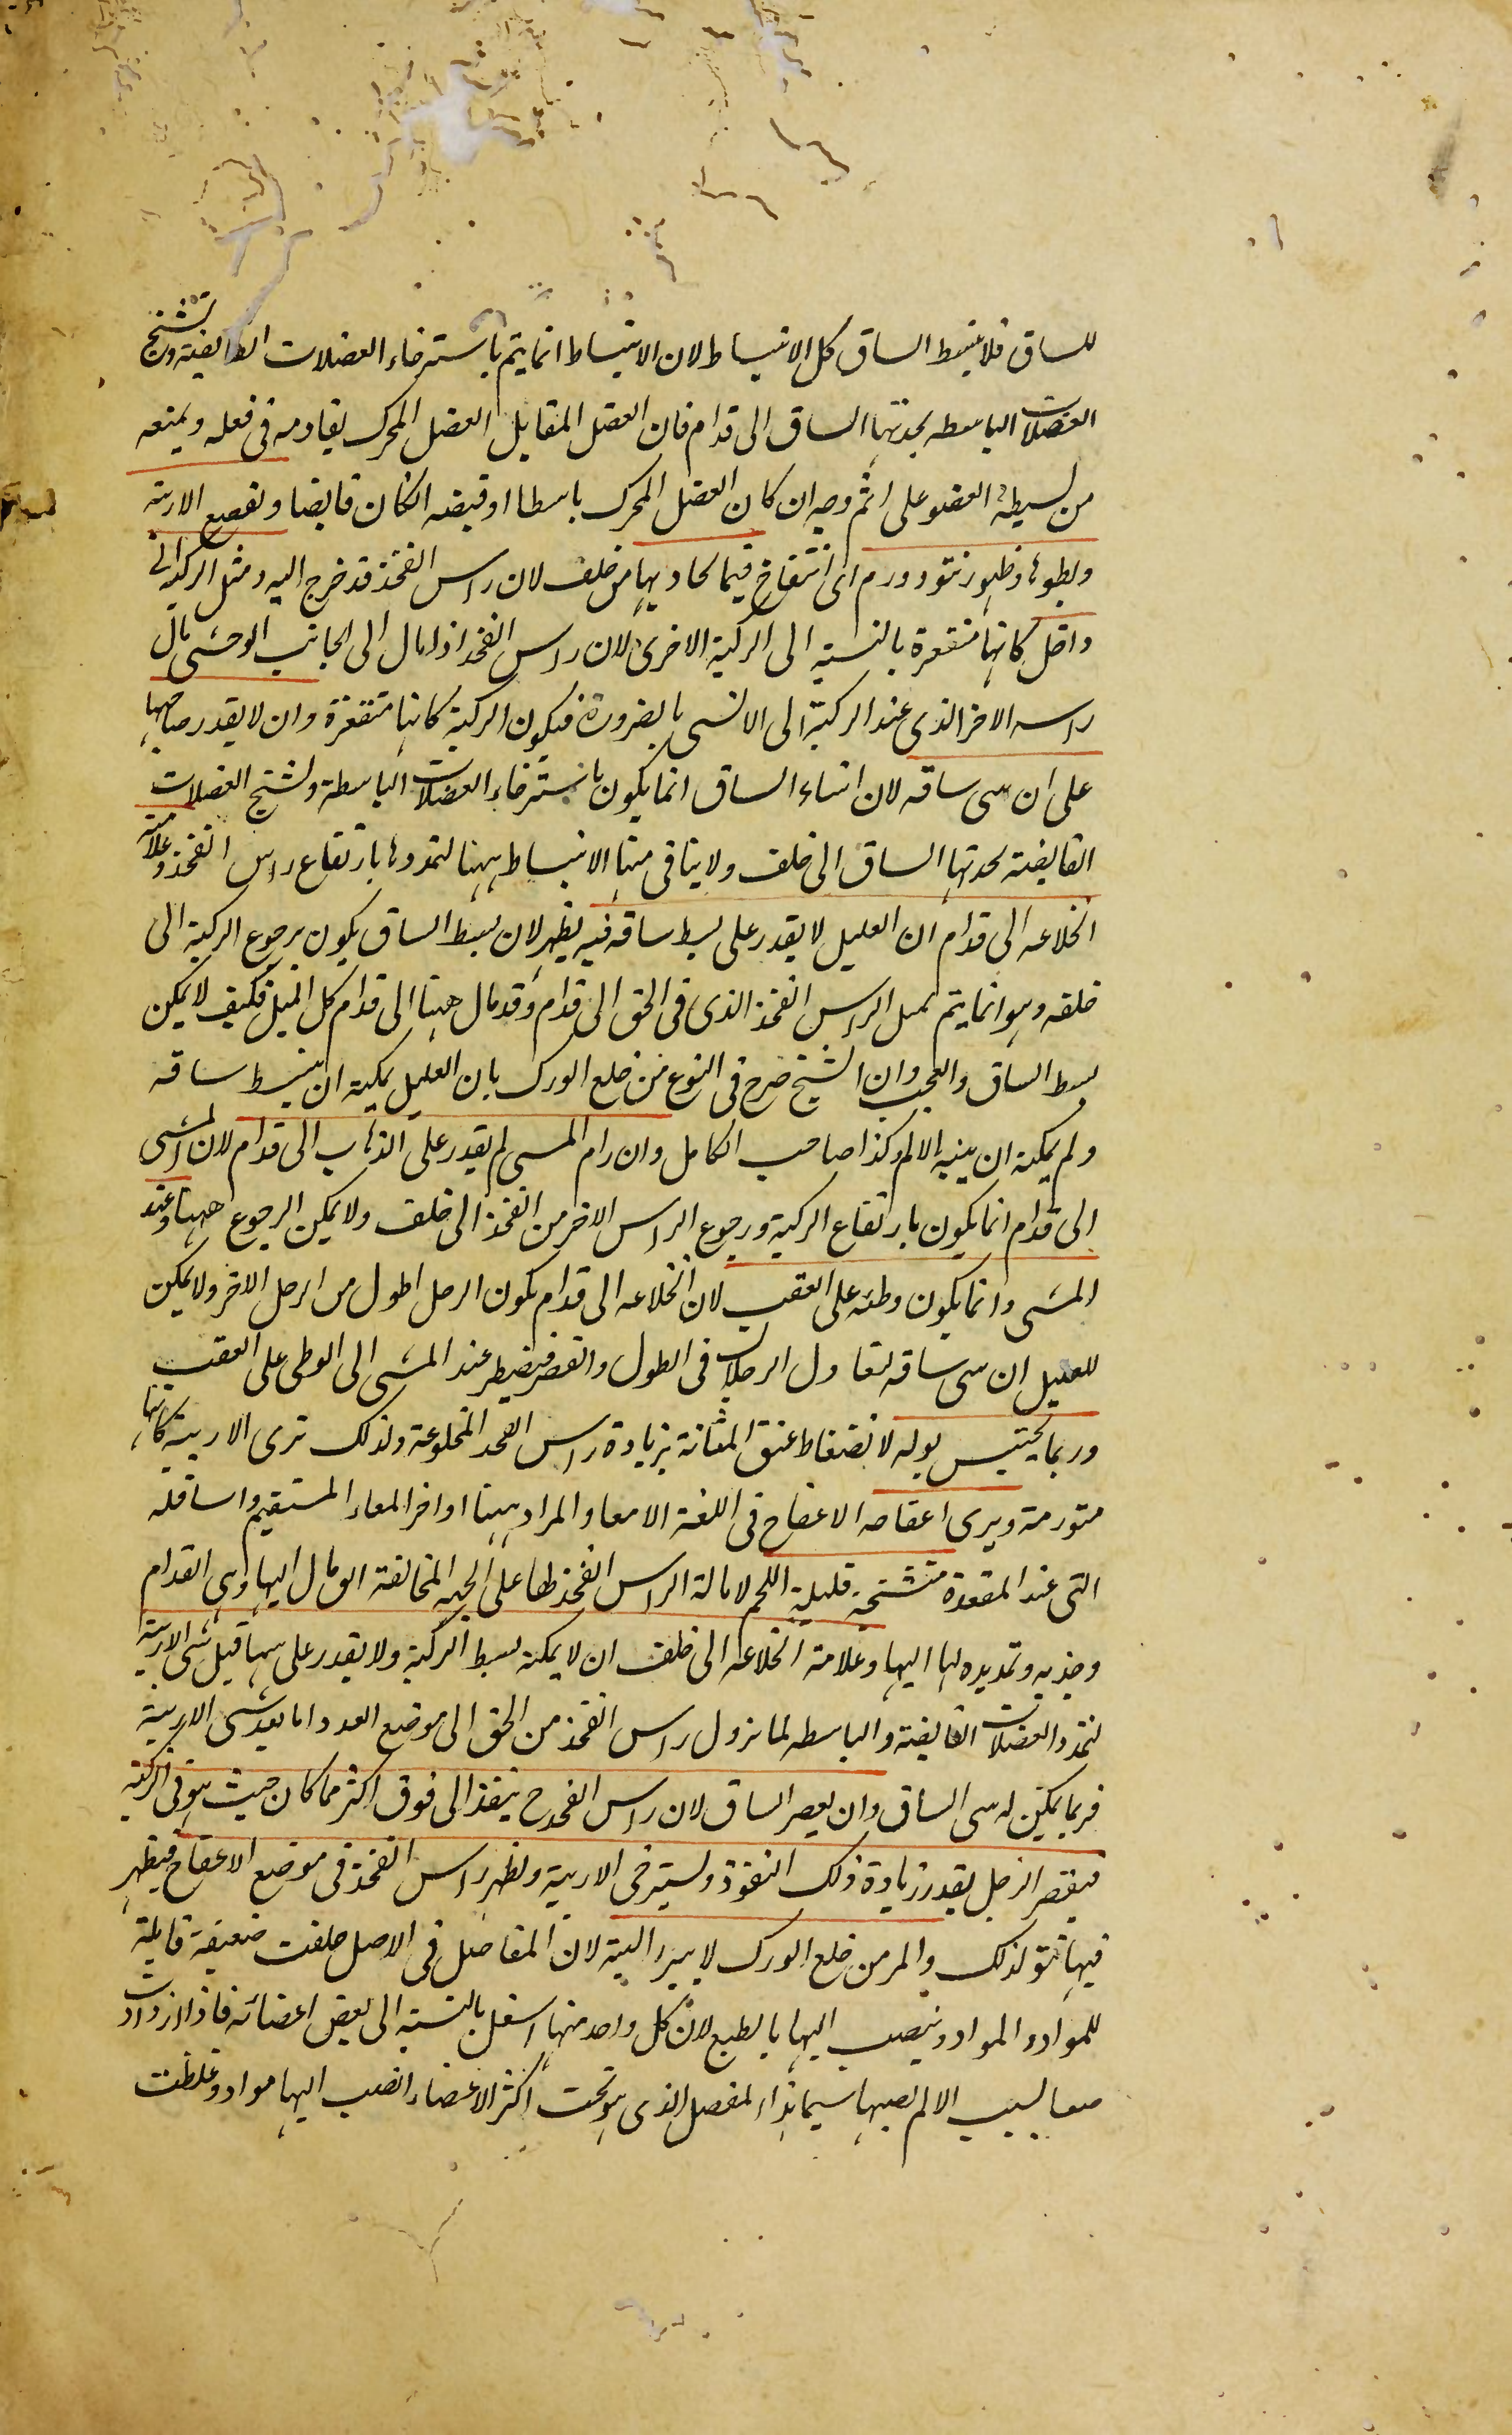 للساق فلا ينبسط الساق كل الانبساط لان الانبساط انما يتم باسترخاء العضلات القابضة وتشنج
العضلات الباسطه بجذبها الساق الى قدام فان العضل المقابل العضل المحرك يقاومه فى فعله ويمنعه
من بسيطة العضو على اثم وجه ان كان العضل المحرك باسطا او قبضه ان كان قابضا وتقصع الارنبة
وبطونها وظهور نتو وورم اى انتفاخ فيما يحاذيها من خلف لان راس الفخذ قد خرج اليه ودخل الركبة الى
داخل كانها منقعرة بالنسبة الى الركبة الاخرى لان راس الفخذ اذا مال الى الجانب الوحشى مال
راسه الاخر الذى عند الركبة الى الانسى بالضرورة فيكون الركبة كانها متقعرة وان لا يقدر صاحبها
على ان يثنى ساقه لان انثناء الساق انما يكون باسترخاء العضلات الباسطة وتشنج العضلات
القابضة بجذبها الساق الى خلف ولا يتاتى منها الانبساط ههنا لتمددها بارتفاع راس الفخذ وعلامة
انخلاعه الى قدام ان العليل لا يقدر على بسط ساقه فيه نظر لان بسط الساق يكون برجوع الركبة الى
خلفه وهو انما يتم بميل الراس الفخذ الذى فى الحق الى قدام وقد مال ههنا الى قدام كل الميل فكيف لا يمكن
بسط الساق والعجب ان الشيخ صرح فى النوع من خلع الورك بان العليل يمكنه ان يبسط ساقه
ولم يمكنه ان يثنيه الا لم وكذا صاحب الكامل وان رام المشى لم يقدر على الذهاب الى قدام لان المشى
الى قدام انما يكون بارتفاع الركبة ورجوع الراس الاخر من الفخذ الى خلف ولا يمكن الرجوع ههنا وعند
المشى وانما يكون وطئه على العقب لان انخلاعه الى قدام يكون الرجل اطول من الرجل الاخر ولا يمكن
للعليل ان يثنى ساقه لتعادل الرجلان فى الطول والقصر فيضطر عند المشى الى الوطى على العقب
وربما يحتبس بوله لانضغاط عنق المثانة بزيادة راس الفخذ المخلوعة ولذلك ترى الاربية كانها
متورمة ويرى اعفاجه الاعفاج فى اللغة الامعا والمراد ههنا اواخر المعاء المستقيم واسافله
التى عند المقعدة متشنجة قليلة اللحم لامالة الراس الفخذ لها على الجهة المخالفة التى مال اليها وهى القدام
وجذبه وتمديده لها اليها وعلامة انخلاعه الى خلف ان لا يمكنه بسط الركبة ولا يقدر على ثنيها قبل ثنى الاربية
لتمدد العضلات القابضة والباسطه لما نزول راس الفخذ من الحق الى موضع العدد اما بعد ثنى الاربية
فربما يمكن له ثنى الساق وان يقصر الساق لان راس الفخذ ح ينفذ الى فوق اكثر مما كان حيث هو فى الركبة
فيقصر الرجل بقدر زيادة ذلك النفوذ ويسترخى الاربية ويظهر راس الفخذ فى موضع الاعفاج فيظهر
فيها نتو لذلك والمزمن خلع الورك لا يبرا البتة لان المفاصل فى الاصل خلقت ضعيفة قابلة
للمواد والمواد ينصب اليها بالطبع لان كل واحد منها اسفل بالنسبة الى بعض اعضائه فاذا ازدادت
ضعفا بسبب الالم يصبها سيما هذا المفصل الذى هو تحت اكثر الاعضاء انصب اليها مواد وغلظت